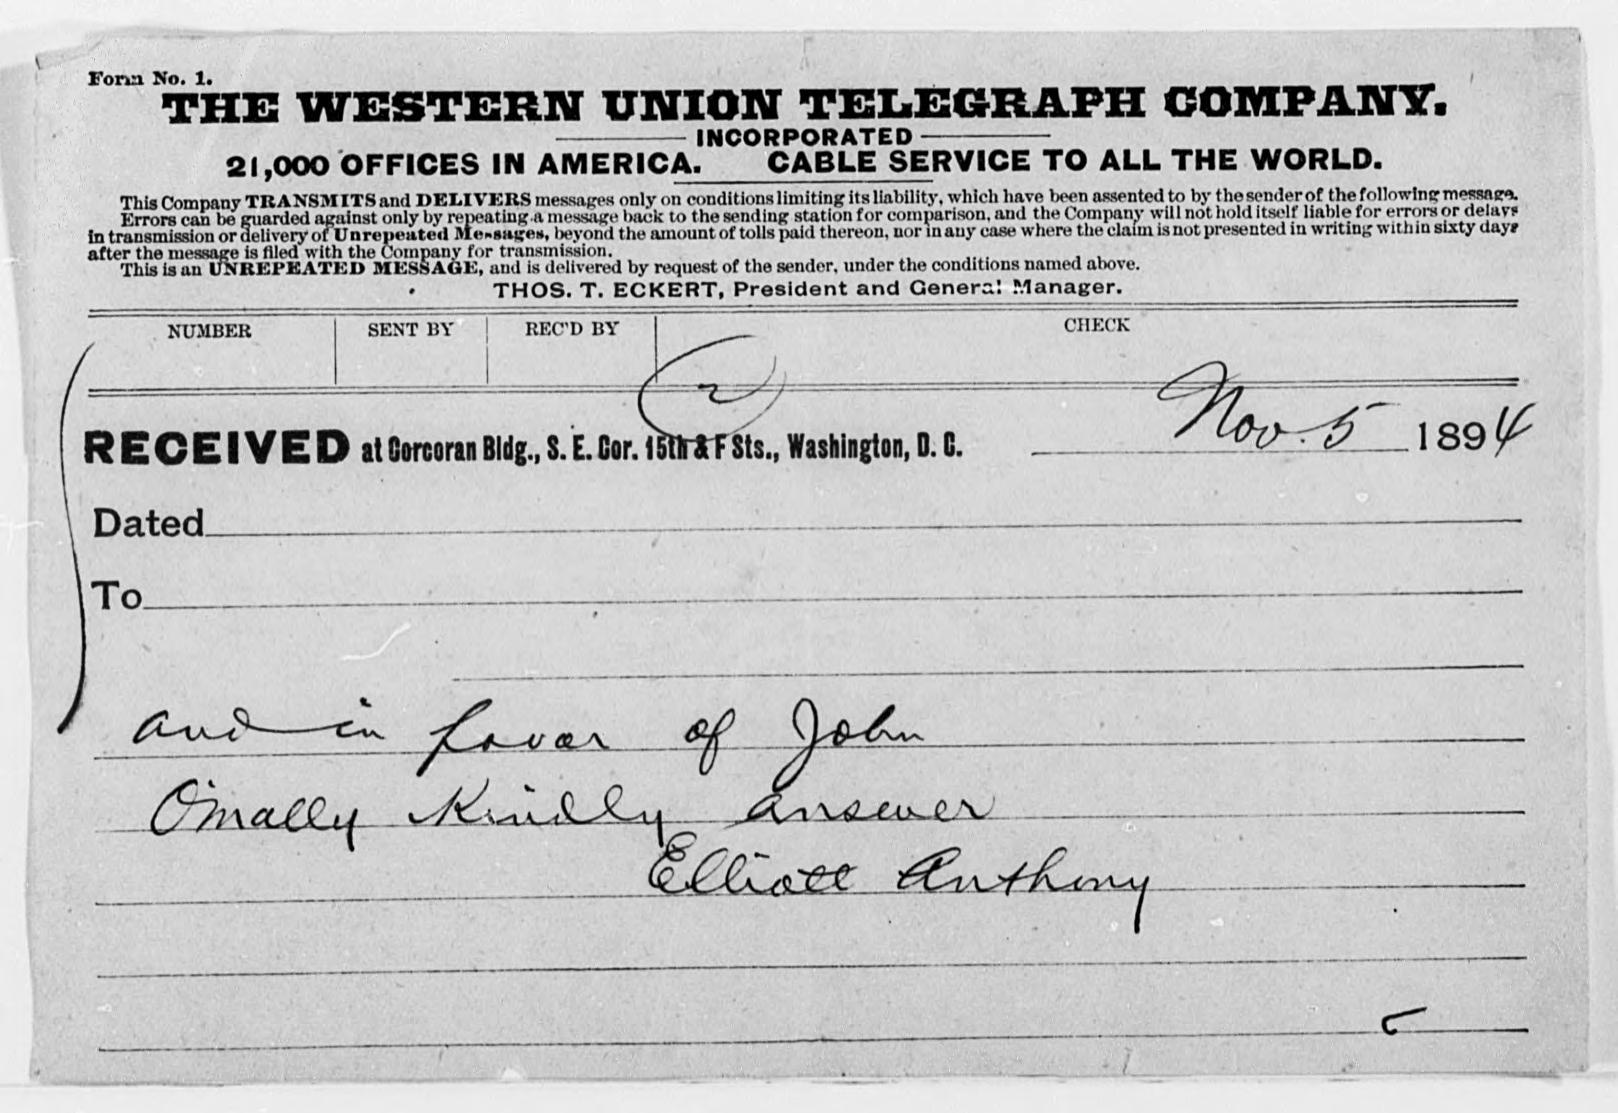 Form No. 1.
THE WESTERN UNION TELEGRAPH COMPANY.
INCORPORATED
21,000 OFFICES IN AMERICA. CABLE SERVICE TO ALL THE WORLD.
This Company TRANSMITS and DELIVERS messages only on conditions limiting its liability, which have been assented to by the sender of the following message.
Errors can be guarded against only by repeating a message back to the sending station for comparison, and the Company will not hold itself liable for errors or delays
in transmission or delivery of Unrepeated Messages, beyond the amount of tolls paid thereon, nor in any case where the claim is not presented in writing within sixty days
after the message is filed with the Company for transmission.
This is an UNREPEATED MESSAGE, and is delivered by request of the sender, under the conditions named above.
THOS. T. ECKERT, President and General Manager.
NUMBER SENT BY REC'D BY CHECK
2
RECEIVED at Corcoran Bldg., S. E. Cor. 15th & F Sts., Washington, D. C. Nov. 5 1894
Dated
To
and in favor of John
O'Mally Kindly answer
Elliott Anthony